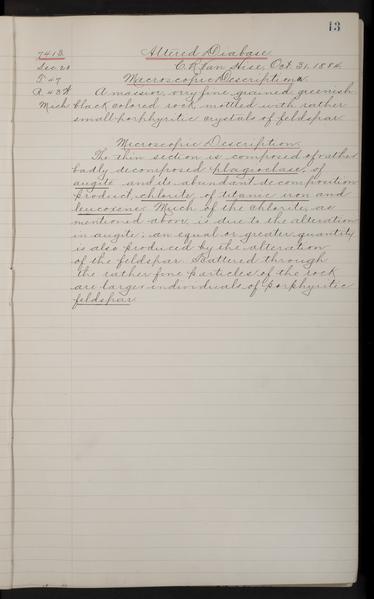 13
7413. Altered Diabase
Sec. 20 C. R. Van Hise, Oct. 31, 1884.
T 47 Macroscopic Description.
R. 43 W A massive, very fine grained greenish
Mich black colored rock mottled with rather
small porphyritic crystals of feldspar.
Microscopic Description.
The thin section is composed of rather
badly decomposed plagioclase, of
augite and its abundant decomposition
product, chlorite, of titanic iron and
leucoxene. Much of the chlorite, as
mentioned above, is due to the alteration
in augite; an equal or greater quantity
is also produced by the alteration
of the feldspar. Scattered through
the rather fine particles of the rock
are larger individuals of porphyritic
feldspar